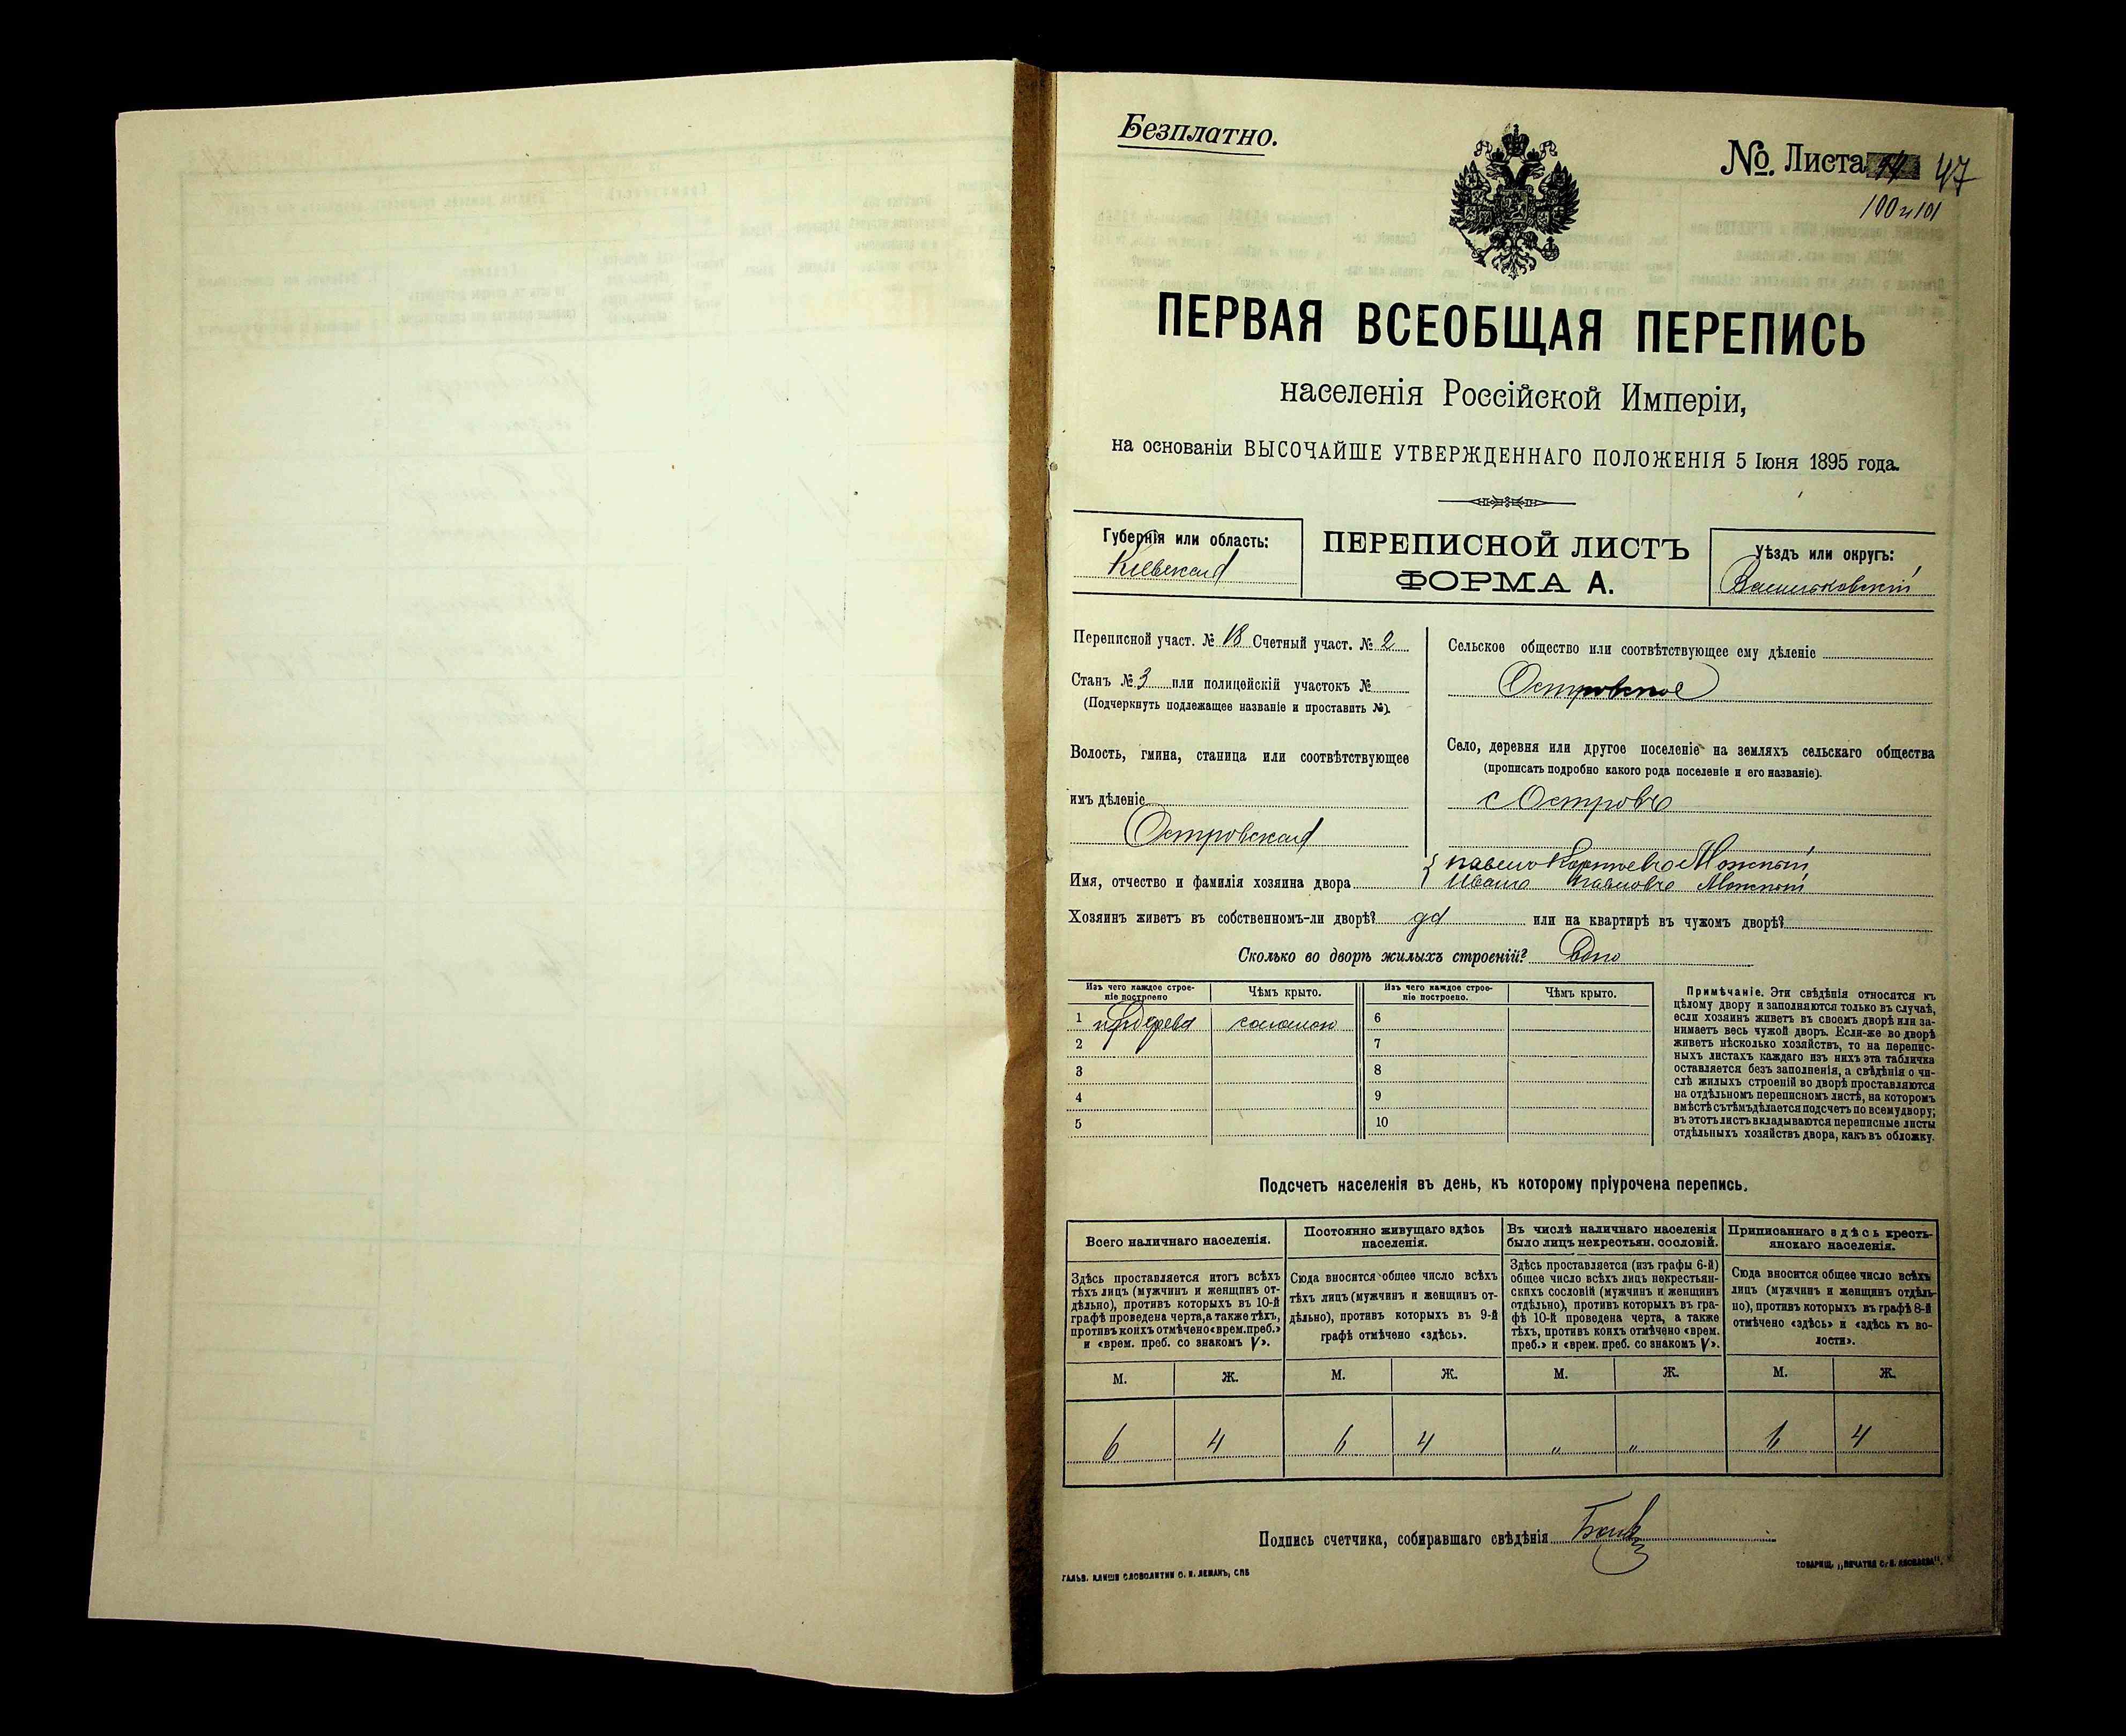 Безплатно.
№. Листа 47
100 и 101
ПЕРВАЯ ВСЕОБЩАЯ ПЕРЕПИСЬ
населенія Россійской Имперіи,
на основаніи ВЫСОЧАЙШЕ УТВЕРЖДЕННАГО ПОЛОЖЕНІЯ 5 Іюня 1895 года.
Губернія или область:
Кіевская
ПЕРЕПИСНОЙ ЛИСТЪ
ФОРМА А.
Уѣздъ или округъ:
Васильковскій
Переписной участ. № 18 Счетный участ. № 2
Станъ № 3 или полицейскій участокъ №
(Подчеркнуть подлежащее названіе и проставить №).
Волость, гмина, станица или соотвѣтствующее
имъ дѣленіе
Островская
Сельское общество или соотвѣтствующее ему дѣленіе
Островское
Село, деревня или другое поселеніе на земляхъ сельскаго общества
(прописать подробно какого рода поселеніе и его названіе).
с Островъ
Имя, отчество и фамилія хозяина двора
Иванъ Павловъ
Хозяинъ живетъ въ собственномъ-ли дворѣ? да или на квартирѣ въ чужомъ дворѣ?
Сколько во дворѣ жилыхъ строеній? Одно
Изъ чего каждое строе-
ніе построено
Чѣмъ крыто.
Изъ чего каждое строе-
ніе построено.
Чѣмъ крыто.
1 изъ дерева соломою 6
2 7
3 8
4 9
5 10
Примѣчаніе. Эти свѣдѣнія относятся къ
цѣлому двору и заполняются только въ случаѣ,
если хозяинъ живетъ въ своемъ дворѣ или за-
нимаетъ весь чужой дворъ. Если-же во дворѣ
живетъ нѣсколько хозяйствъ, то на перепис-
ныхъ листахъ каждаго изъ нихъ эта табличка
оставляется безъ заполненія, а свѣдѣнія о чи-
слѣ жилыхъ строеній во дворѣ проставляются
на отдѣльномъ переписномъ листѣ, на которомъ
вмѣстѣ съ тѣмъ дѣлается подсчетъ по всему двору;
въ этотъ листъ вкладываются переписные листы
отдѣльныхъ хозяйствъ двора, какъ въ обложку.
Подсчетъ населенія въ день, къ которому пріурочена перепись.
Всего наличнаго населенія.
Здѣсь проставляется итогъ всѣхъ
тѣхъ лицъ (мужчинъ и женщинъ от-
дѣльно), противъ которыхъ въ 10-й
графѣ проведена черта, а также тѣхъ,
противъ коихъ отмѣчено «врем. преб.»
и «врем. преб. со знакомъ V».
Постоянно живущаго здѣсь
населенія.
Сюда вносится общее число всѣхъ
тѣхъ лицъ (мужчинъ и женщинъ от-
дѣльно), противъ которыхъ въ 9-й
графѣ отмѣчено «здѣсь».
Въ числѣ наличнаго населенія
было лицъ некрестьян. сословій.
Здѣсь проставляется (изъ графы 6-й)
общее число всѣхъ лицъ некрестьян-
скихъ сословій (мужчинъ и женщинъ
отдѣльно), противъ которыхъ въ гра-
фѣ 10-й проведена черта, а также
тѣхъ, противъ коихъ отмѣчено «врем.
преб.» и «врем. преб. со знакомъ V».
Приписаннаго здѣсь кресть-
янскаго населенія.
Сюда вносится общее число всѣхъ
лицъ (мужчинъ и женщинъ отдѣль-
но), противъ которыхъ въ графѣ 8-й
отмѣчено «здѣсь» и «здѣсь въ во-
лости».
М. Ж. М. Ж. М. Ж. М. Ж.
6 4 6 4 " " 6 4
Подпись счетчика, собиравшаго свѣдѣнія
ГАЛЬВ. КЛИШЕ СЛОВОЛИТНИ О. И. ЛЕМАНЪ, СПБ
ТОВАРИЩ. „ПЕЧАТНЯ С. П. ЯКОВЛЕВА".